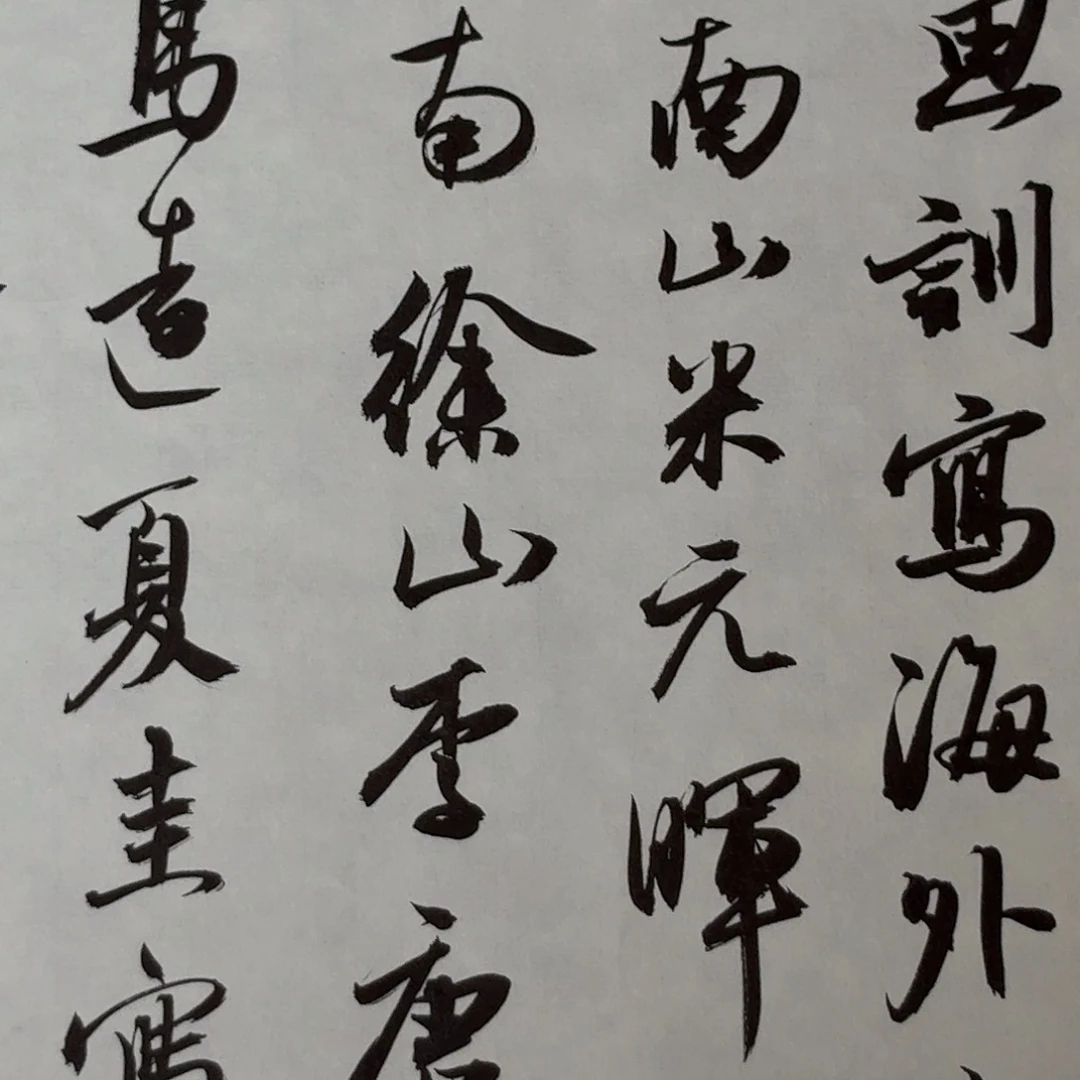 思訓寫海外
南山米元暉
南徐山李唐
馬遠夏圭寫